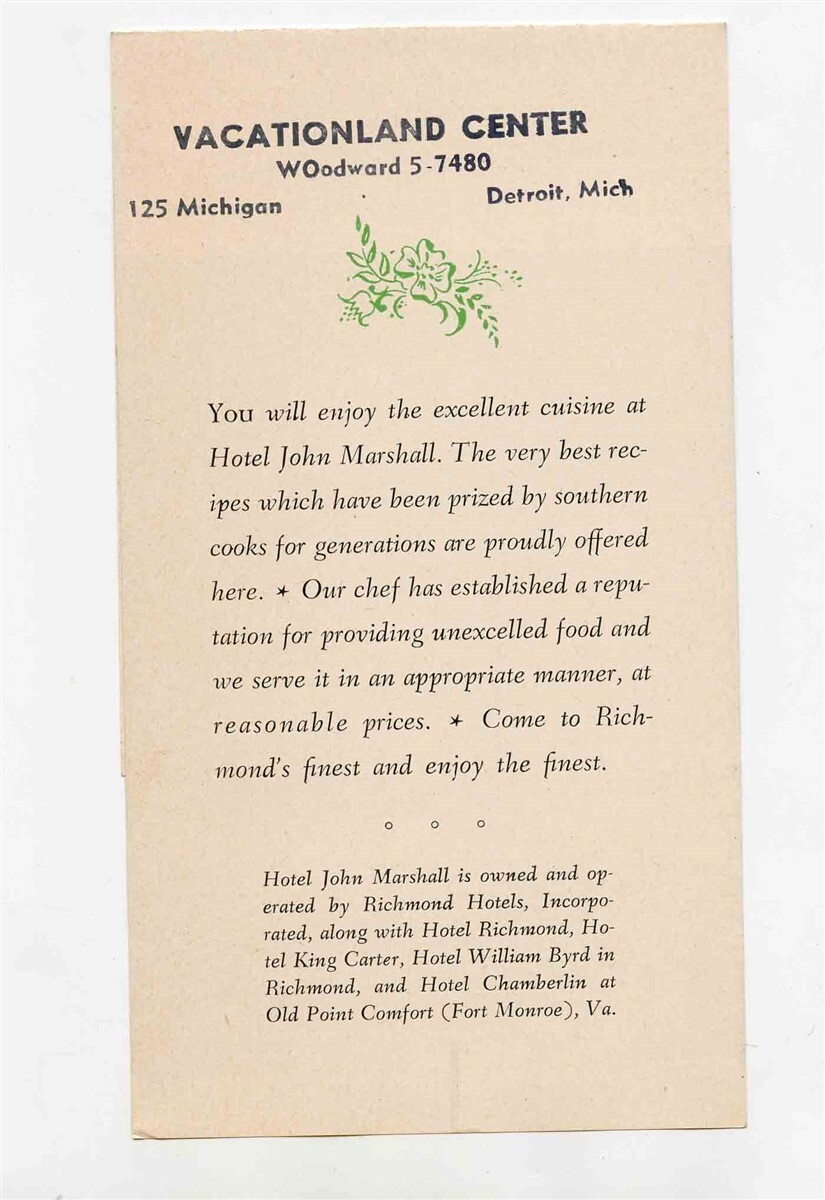 VACATIONLAND CENTER
WOodward 5-7480
125 Michigan Detroit, Mich
You will enjoy the excellent cuisine at
Hotel John Marshall. The very best rec-
ipes which have been prized by southern
cooks for generations are proudly offered
here. ★ Our chef has established a repu-
tation for providing unexcelled food and
we serve it in an appropriate manner, at
reasonable prices. ★ Come to Rich-
mond's finest and enjoy the finest.
Hotel John Marshall is owned and op-
erated by Richmond Hotels, Incorpo-
rated, along with Hotel Richmond, Ho-
tel King Carter, Hotel William Byrd in
Richmond, and Hotel Chamberlin at
Old Point Comfort (Fort Monroe), Va.